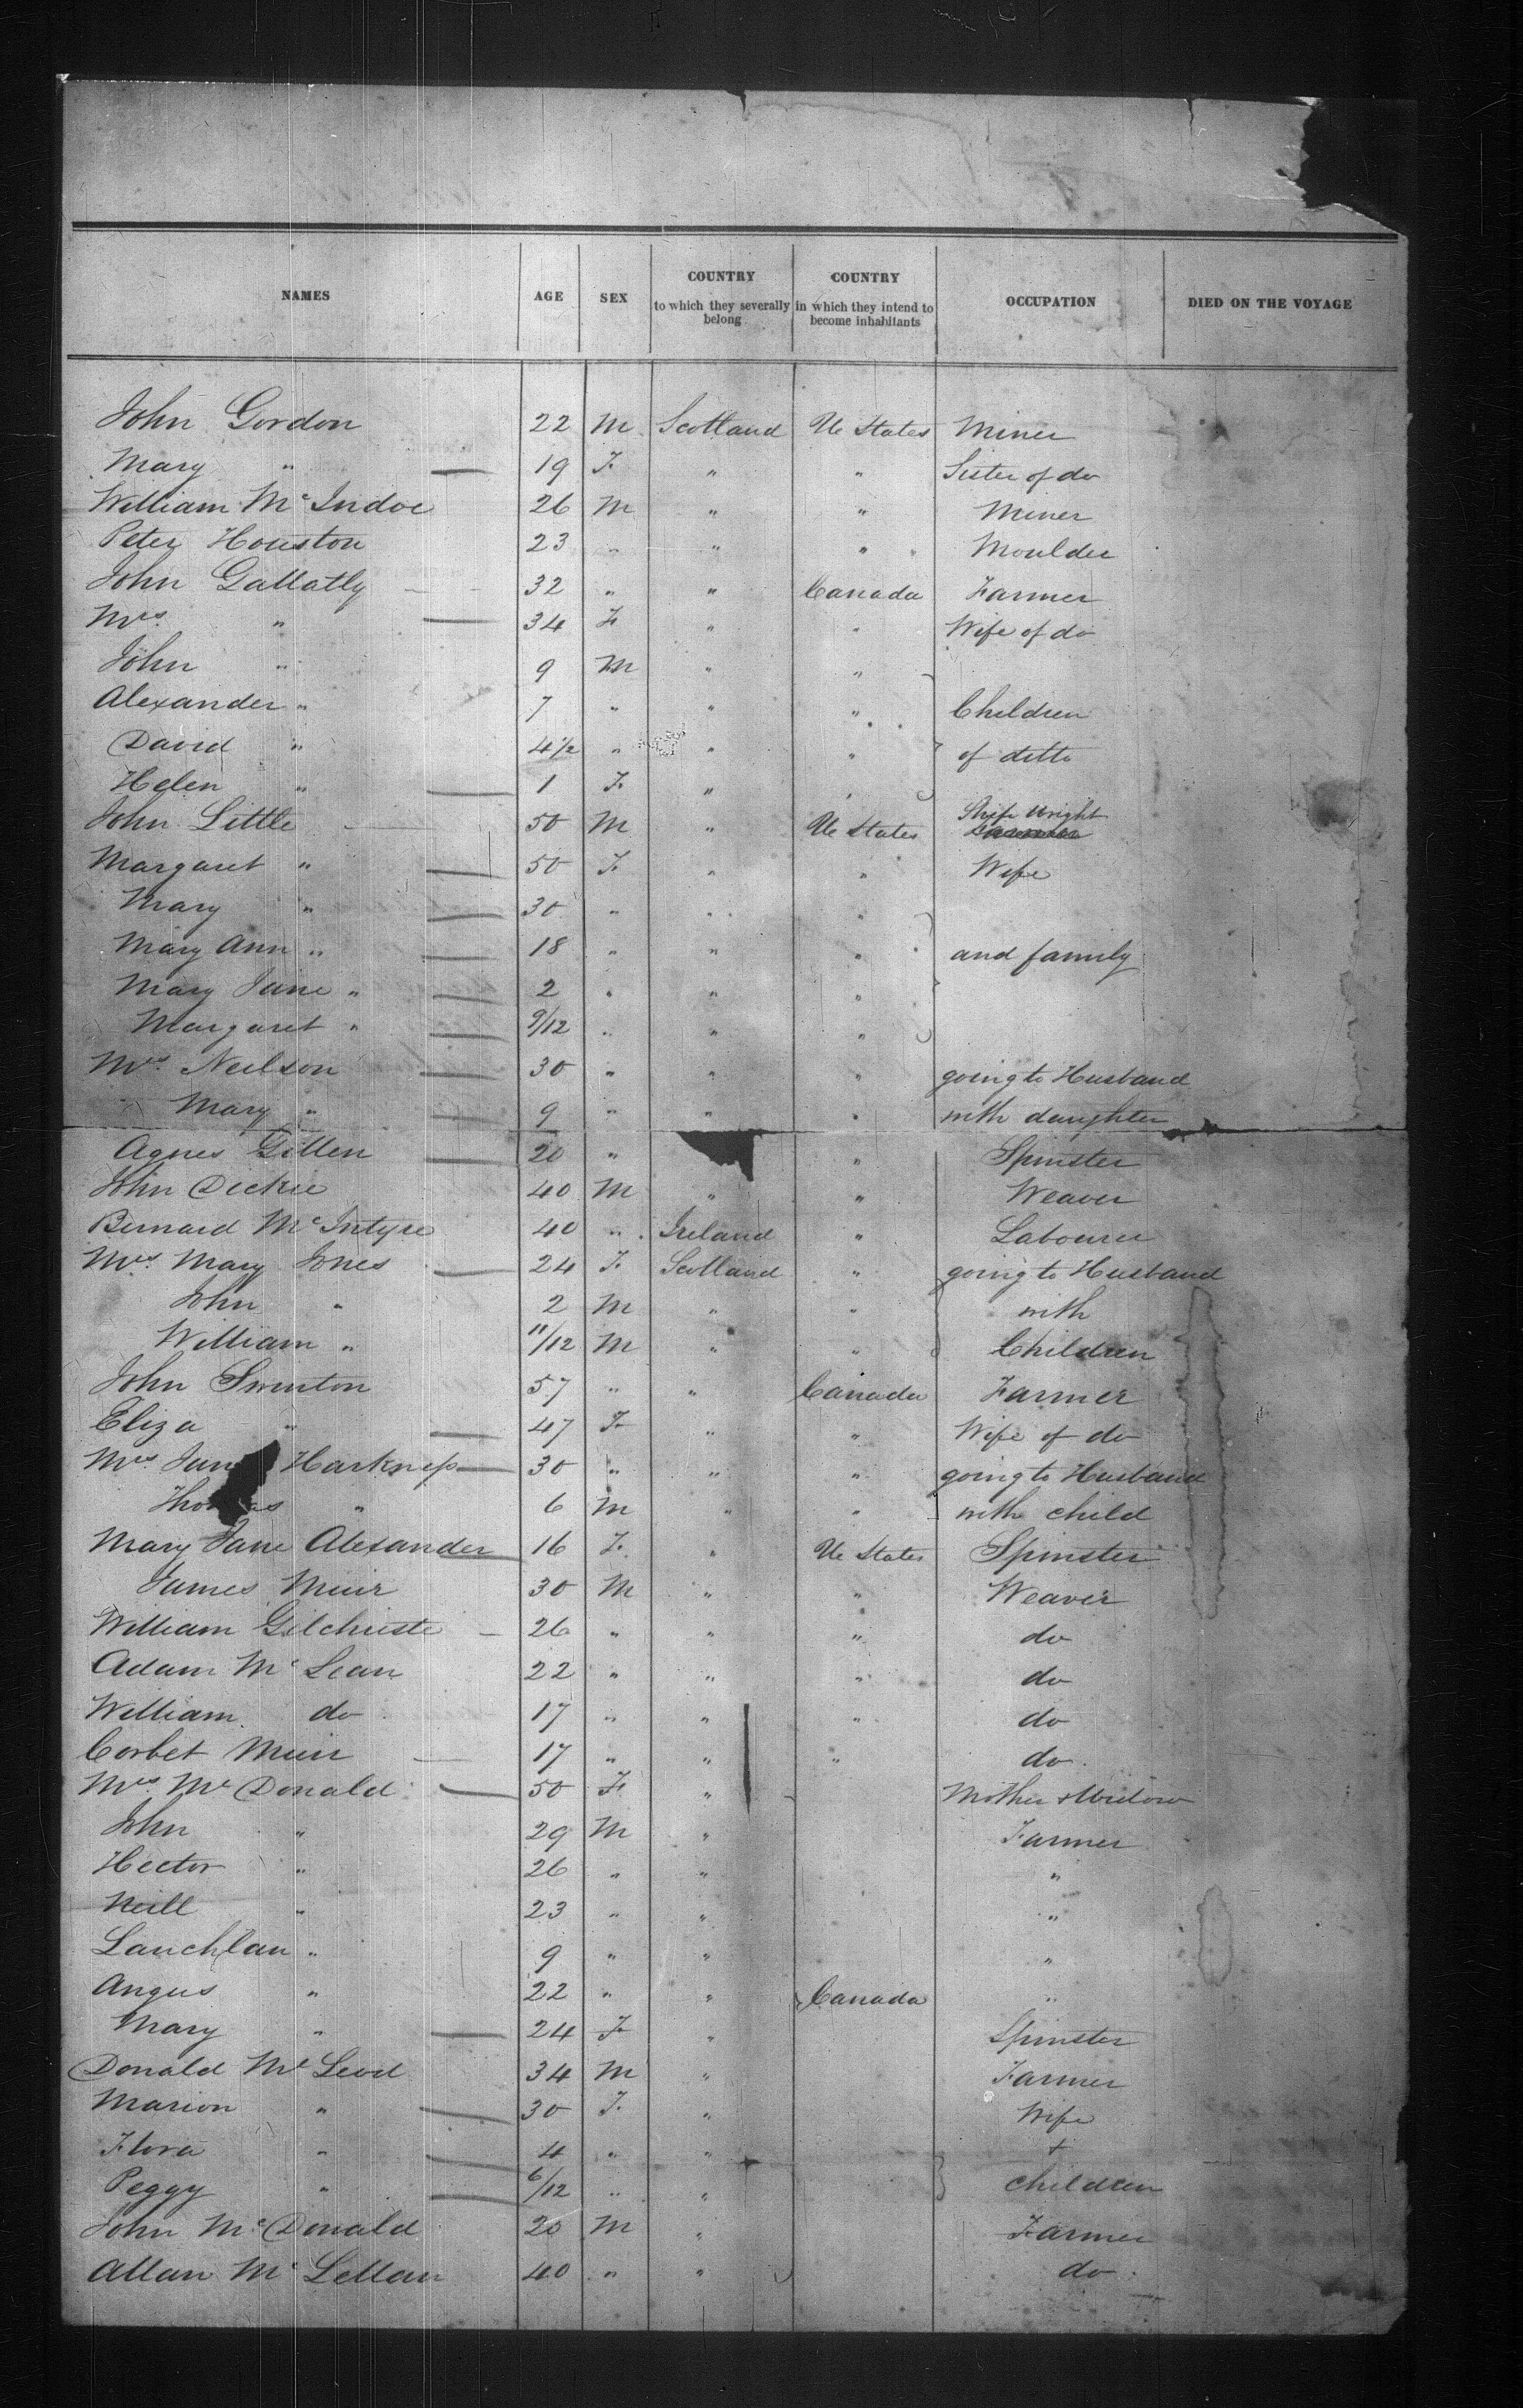 NAMES AGE SEX COUNTRY to which they severally belong COUNTRY in which they intend to become inhabitants OCCUPATION DIED ON THE VOYAGE
John Gordon 22 M Scotland Ue States Miner
Mary " 19 F " " Sister of do
William Mc Indoe 26 M " " Miner
Peter Houston 23 " " " Moulder
John Gallatly 32 " " Canada Farmer
Mrs. " 34 F " " Wife of do
John " 9 M " "
Alexander " 7 " " " Children
David " 4½ " " " of ditto
Helen " 1 F " "
John Little 50 M " Ue States Ship Wright
Margaret " 50 F " " Wife
Mary " 30 " " "
Mary Ann " 18 " " " and family
Mary Jane " 2 " " "
Margaret " 9/12 " " "
Mrs. Neilson 30 " " " going to Husband
Mary " 9 " " " with daughter
Agnes Gillen 20 " " Spinster
John Dickie 40 M " " Weaver
Bernard Mc Intyre 40 " Ireland " Labourer
Mrs. Mary Jones 24 F Scotland " going to Husband
John " 2 M " " with
William " 11/12 M " " Children
John Swinton 57 " " Canada Farmer
Eliza " 47 F " " Wife of do
Mrs. Harkness 30 " " " going to Husband
Thomas " 6 M " " with child
Mary Jane Alexander 16 F " Ue States Spinster
James Muir 30 M " " Weaver
William Gilchriste 26 " " " do
Adam Mc Lean 22 " " " do
William do 17 " " " do
Corbet Muir 17 " " " do
Mrs. Mc Donald 50 F " Mother & Widow
John " 29 M " Farmer
Hector " 26 " " "
Neill " 23 " " "
Lauchlan " 9 " " "
Angus " 22 " " Canada "
Mary " 24 F " Spinster
Donald Mc Leod 34 M " Farmer
Marion " 30 F " Wife
Flora " 4 " " +
Peggy " 6/12 " " children
John Mc Donald 20 M " Farmer
Allan Mc Lellan 40 " " do